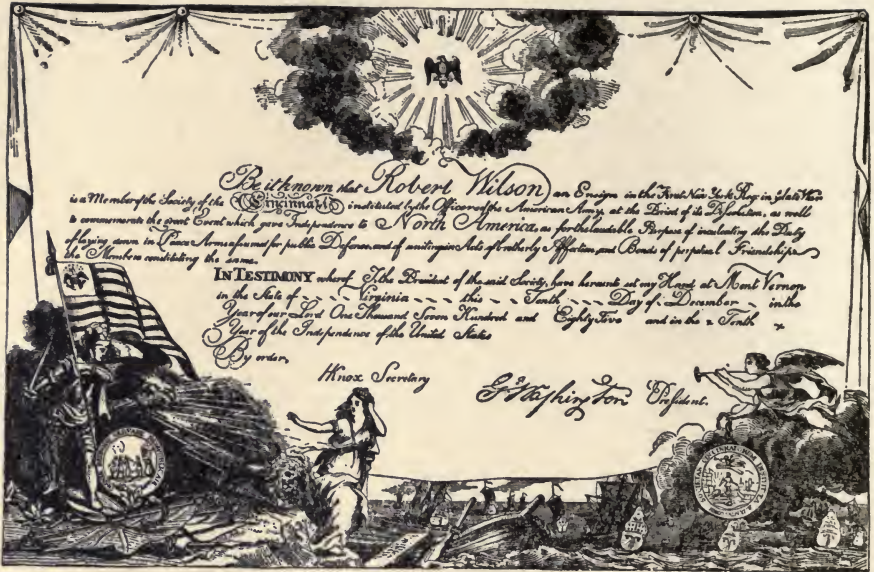 Be it known that Robert Wilson an Ensign in the First New York Reg: in ye late War
is a Member of the Society of the Cincinnati instituted by the Officers of the American Army, at the Period of its Dissolution, as well
to commemorate the great Event which gave Independence to North America, as for the laudable Purpose of inculcating the Duty
of laying down in Peace Arms assumed for public Defence, and of uniting in Acts of brotherly Affection and Bonds of perpetual Friendship
the Members constituting the same.
IN TESTIMONY whereof I the President of the said Society, have hereunto set my Hand at Mont Vernon
in the State of Virginia this Tenth Day of December in the
Year of our Lord One Thousand Seven Hundred and Eighty Five and in the Tenth
Year of the Independence of the United States
By order,
HKnox Secretary
Go Washington President.